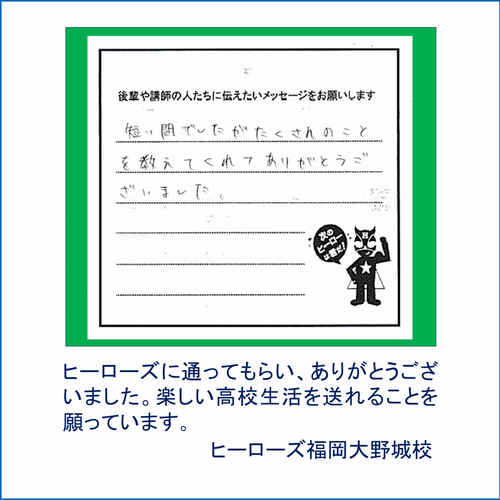 後輩や講師の人たちに伝えたいメッセージをお願いします
短い間でしたがたくさんのこと
を教えてくれてありがとうご
ざいました。
次の
ヒーロー
は君だ!
ヒーローズに通ってもらい、ありがとうござ
いました。楽しい高校生活を送れることを
願っています。
ヒーローズ福岡大野城校